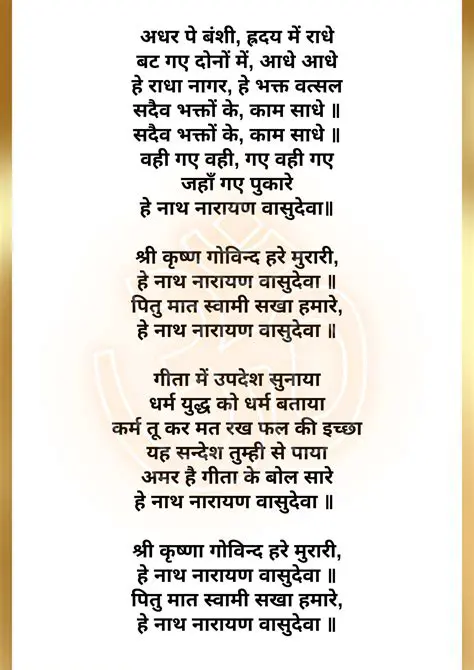 अधर पे बंशी, ह्रदय में राधे
बट गए दोनों में, आधे आधे
हे राधा नागर, हे भक्त वत्सल
सदैव भक्तों के, काम साधे ॥
सदैव भक्तों के, काम साधे ॥
वही गए वही, गए वही गए
जहाँ गए पुकारे
हे नाथ नारायण वासुदेवा॥
श्री कृष्ण गोविन्द हरे मुरारी,
हे नाथ नारायण वासुदेवा ॥
पितु मात स्वामी सखा हमारे,
हे नाथ नारायण वासुदेवा ॥
गीता में उपदेश सुनाया
धर्म युद्ध को धर्म बताया
कर्म तू कर मत रख फल की इच्छा
यह सन्देश तुम्ही से पाया
अमर है गीता के बोल सारे
हे नाथ नारायण वासुदेवा ॥
श्री कृष्णा गोविन्द हरे मुरारी,
हे नाथ नारायण वासुदेवा ॥
पितु मात स्वामी सखा हमारे,
हे नाथ नारायण वासुदेवा ॥